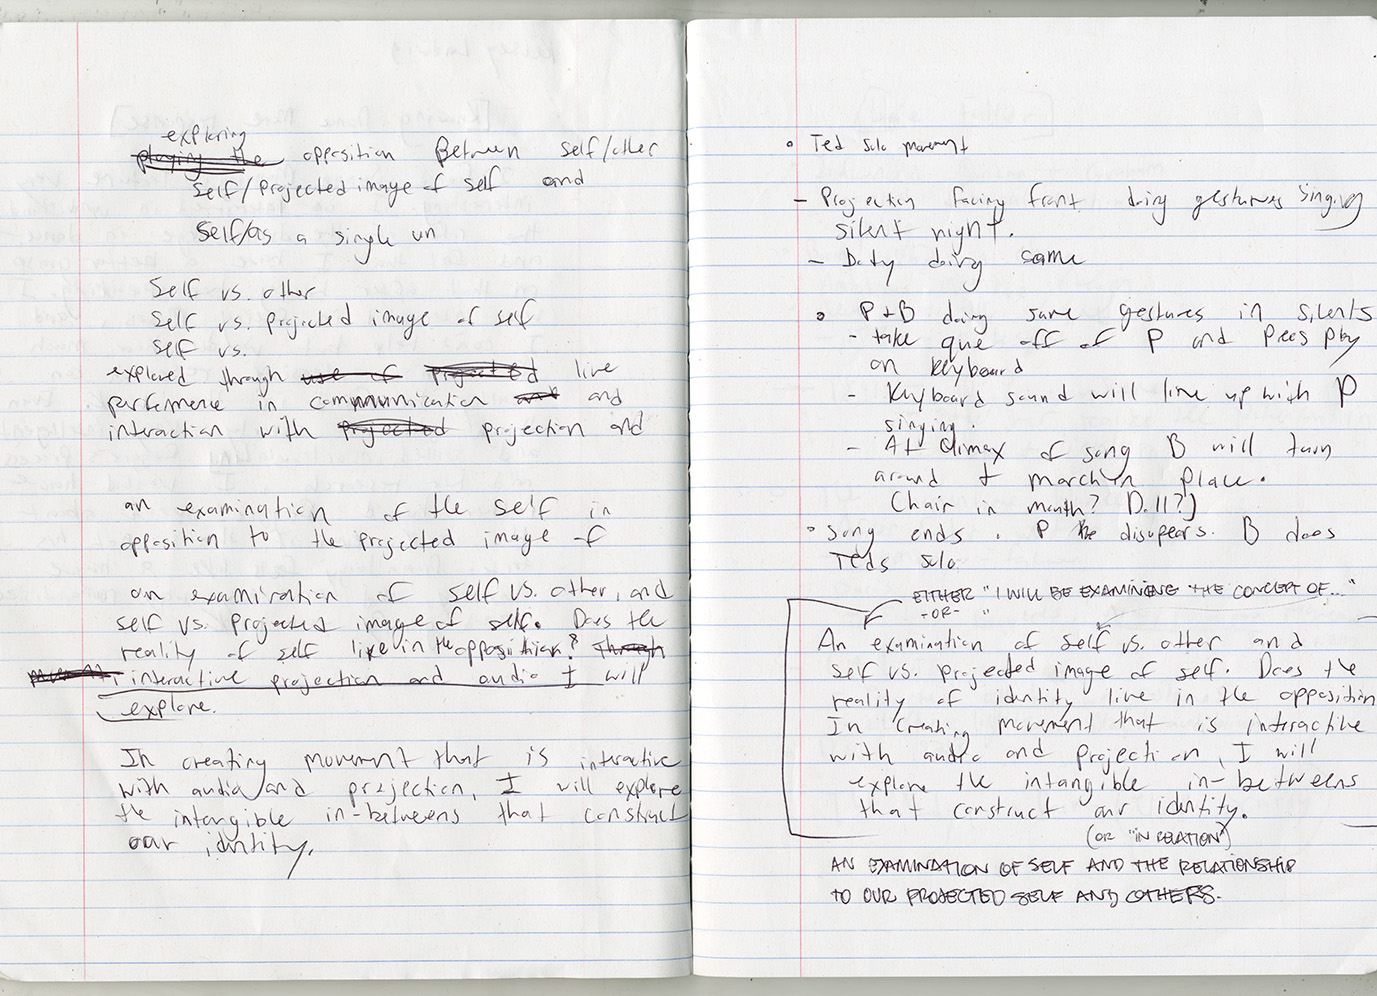 exploring
playing the opposition Between self/other
self/projected image of self and
self/as a single un
Self vs. other
Self vs. projected image of self
Self vs.
explored through use of projected live
performence in communication and and
interaction with projected projection and
an examination of the self in
opposition to the projected image of
an examination of self vs. other, and
self vs. projected image of self. Does the
reality of self live in the opposition? Through
interactive projection and audio I will
explore.
In creating movement that is interactive
with audio and projection, I will explore
the intangible in-betweens that construct
our identity.
• Ted solo movement
- Projection facing front doing gestures singing
silent night.
- Body doing same
• P + B doing same gestures in silents
- take que off of P and press play
on keyboard
- Keyboard sound will line up with P
singing.
- At climax of song B will turn
around + march in place.
(Chair in mouth? Doll?)
• Song ends. P the disapears. B does
Teds solo
EITHER "I WILL BE EXAMINING THE CONCEPT OF..."
-OR- "
An examination of self vs. other and
self vs. projected image of self. Does the
reality of identity live in the opposition
In creating movement that is interactive
with audio and projection, I will
explore the intangible in-betweens
that construct our identity.
(OR "IN RELATION")
AN EXAMINATION OF SELF AND THE RELATIONSHIP
TO OUR PROJECTED SELF AND OTHERS.